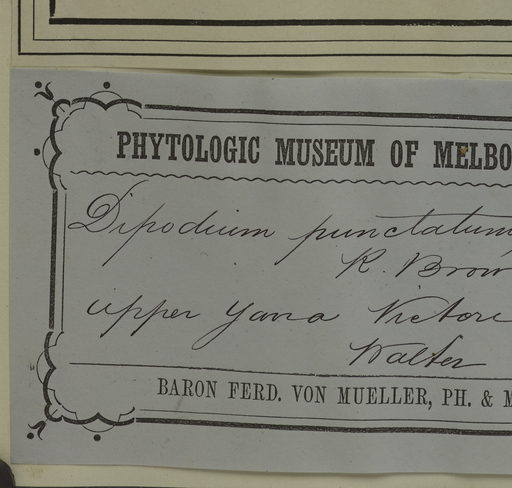 PHYTOLOGIC MUSEUM OF MELBO
Dipodium punctatum
R. Brow
upper Yarra Victori
Walter
BARON FERD. VON MUELLER, PH. & M